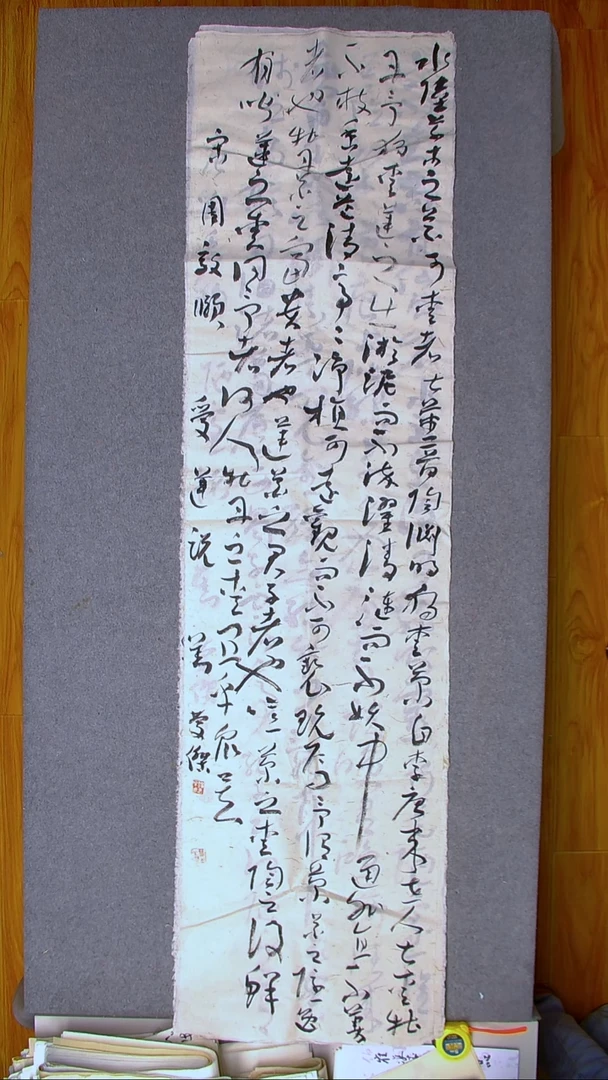 水陸草木之花可愛者甚蕃晉陶淵明獨愛菊自李唐來世人甚愛牡
丹予獨愛蓮之出淤泥而不染濯清漣而不妖中通外直不蔓
不枝香遠益清亭亭淨植可遠觀而不可褻玩焉予謂菊花之隱逸
者也牡丹花之富貴者也蓮花之君子者也噫菊之愛陶之後鮮
有聞蓮之愛同予者何人牡丹之愛宜乎眾矣
宋周敦頤 愛蓮說